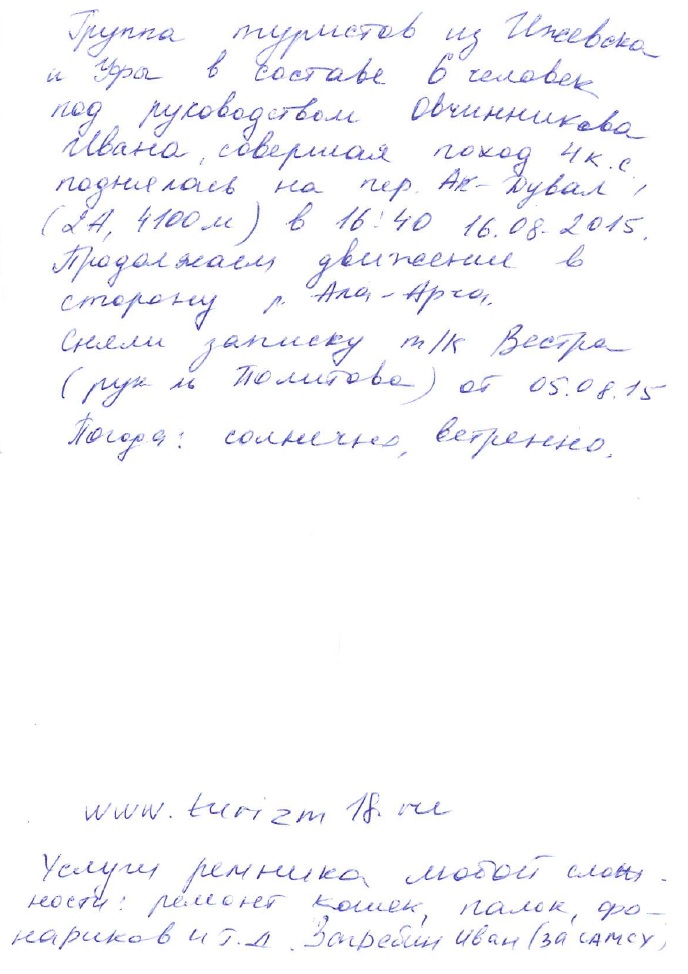 Группа туристов из Ижевска
и Уфы в составе 6 человек
под руководством Овчинникова
Ивана, совершая поход 4 к.с.
поднялась на пер. Ак-Дувал,
(2А, 4100м) в 16:40 16.08.2015.
Продолжаем движение в
сторону р. Ала-Арча.
Сняли записку т/к Вестра
(рук ль Политова) от 05.08.15
Погода: солнечно, ветренно.
www.turizm18.ru
Услуги ремника любой слож-
ности: ремонт кошек, палок, фо-
нариков и т.д. Загребин Иван (